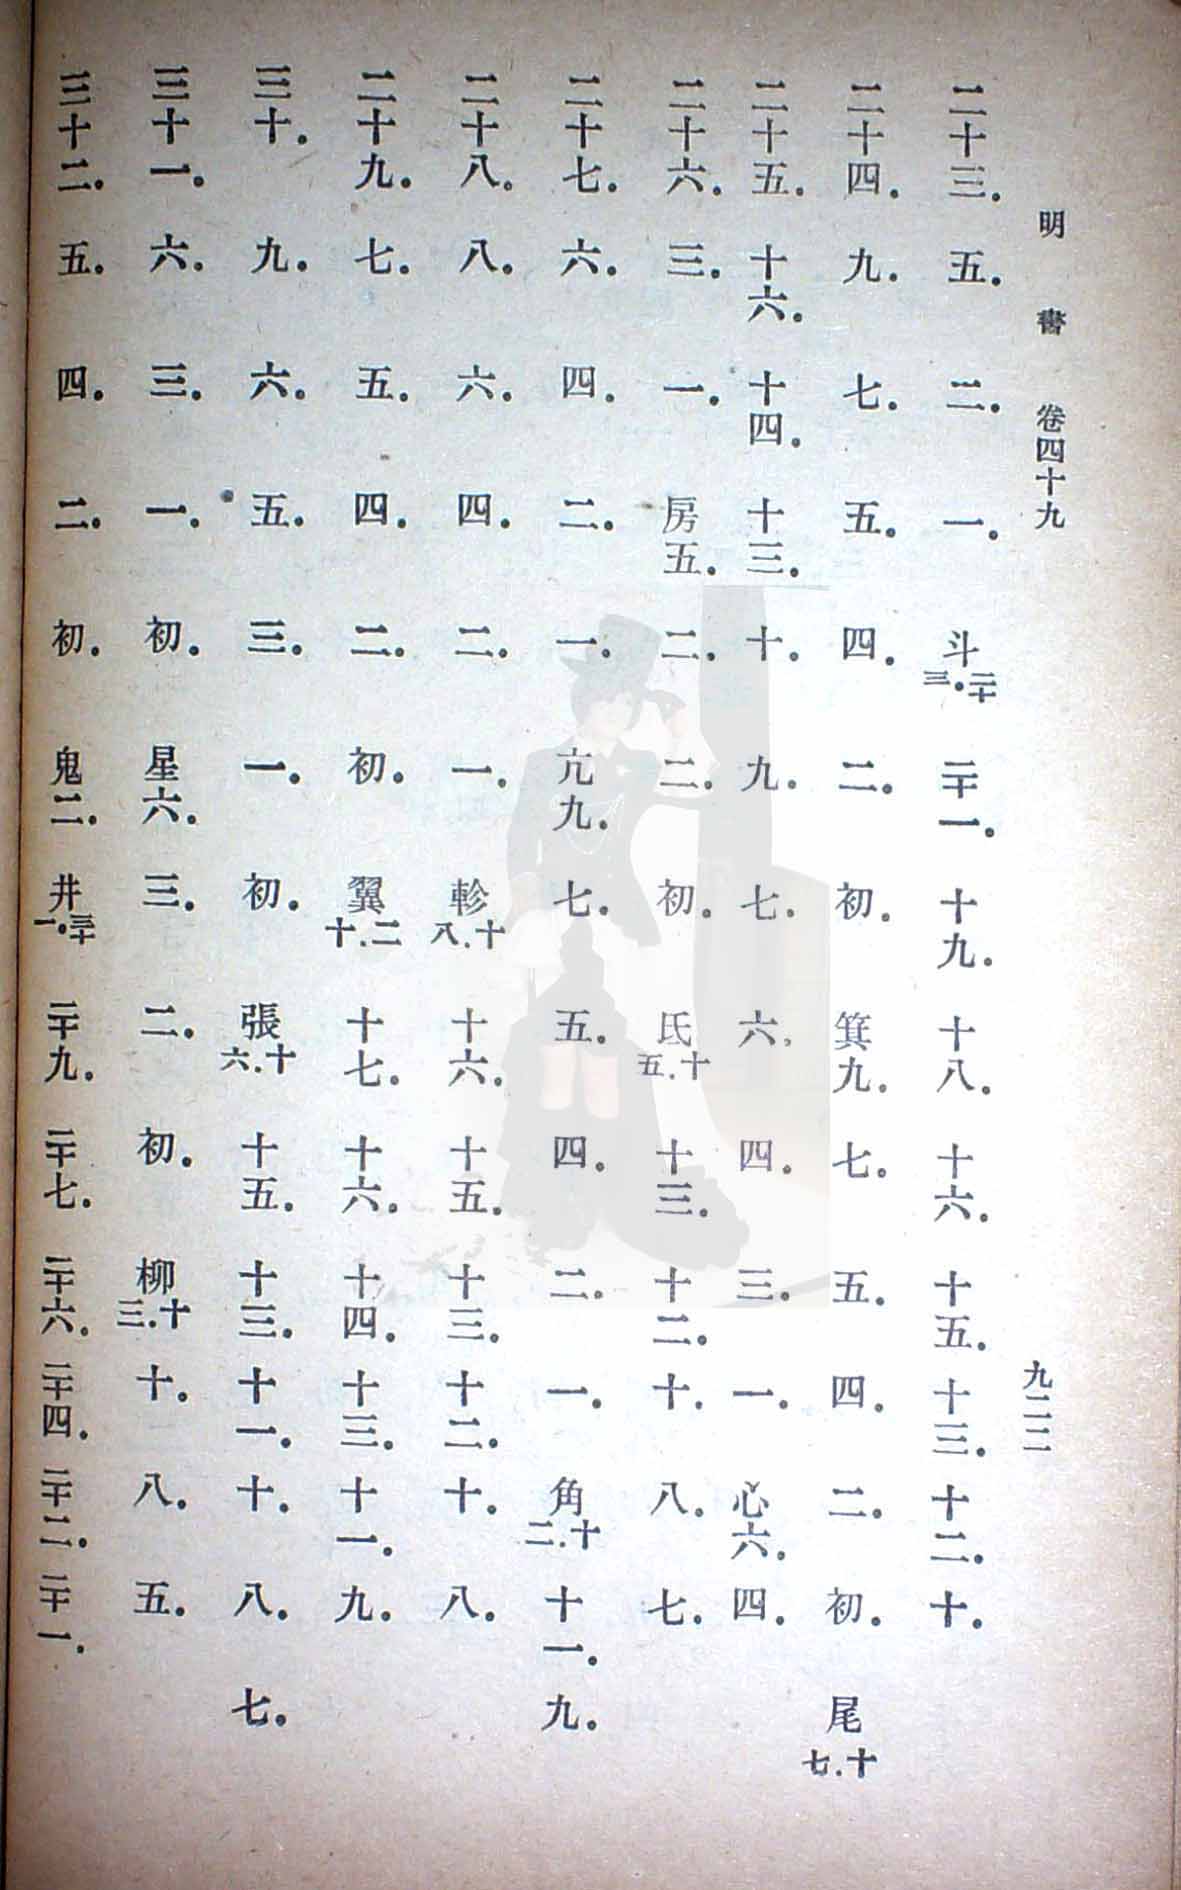 明書 卷四十九 九二二
二十三．五．二．一．斗二十三．二十一．十九．十八．十六．十五．十三．十二．十．
二十四．九．七．五．四．二．初．箕九．七．五．四．二．初．尾十七．
二十五．十六．十四．十三．十．九．七．六．四．三．一．心六．四．
二十六．三．一．房五．二．二．初．氐十五．十三．十二．十．八．七．
二十七．六．四．二．一．亢九．七．五．四．二．一．角十二．十一．九．
二十八．八．六．四．二．一．軫十八．十六．十五．十三．十二．十．八．
二十九．七．五．四．二．初．翼二十．十七．十六．十四．十三．十一．九．
三十．九．六．五．三．一．初．張十六．十五．十三．十一．十．八．七．
三十一．六．三．一．初．星六．三．二．初．柳十三．十．八．五．
三十二．五．四．二．初．鬼二．井三十一．二十九．二十七．二十六．二十四．二十二．二十一．